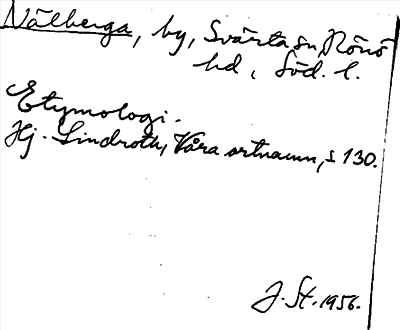 Nälberga, by, Svärta sn, Rönö
hd, Söd. l.
Etymologi.
Hj. Lindroth, Våra ortnamn, s 130.
J. St. 1956.